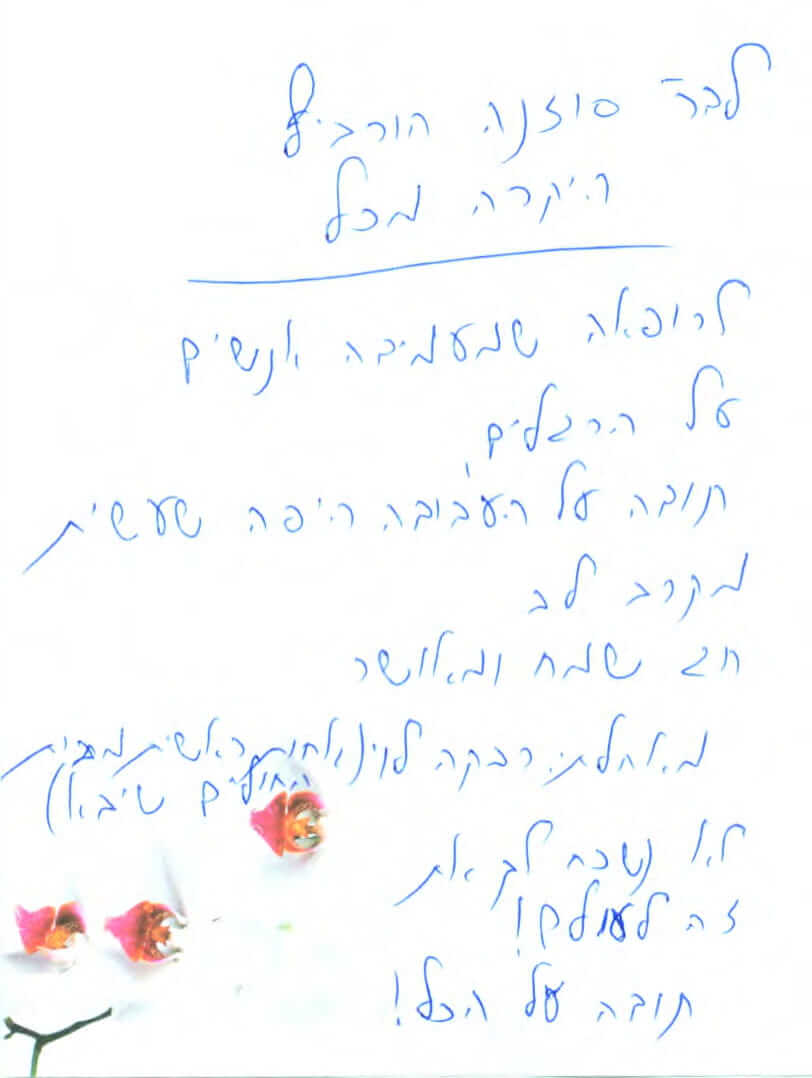 לבר׳ סוזנה הורביץ
היקרה מכל
לרופאה שמעמידה אנשים
על הרגלים,
תודה על העבודה היפה שעשית
מקרב לב
חג שמח ומאושר
מאחלת: רבקה לוי (אחות ראשית מבית
החולים שיבא)
לא נשכח לך את
זה לעולם!
תודה על הכל!